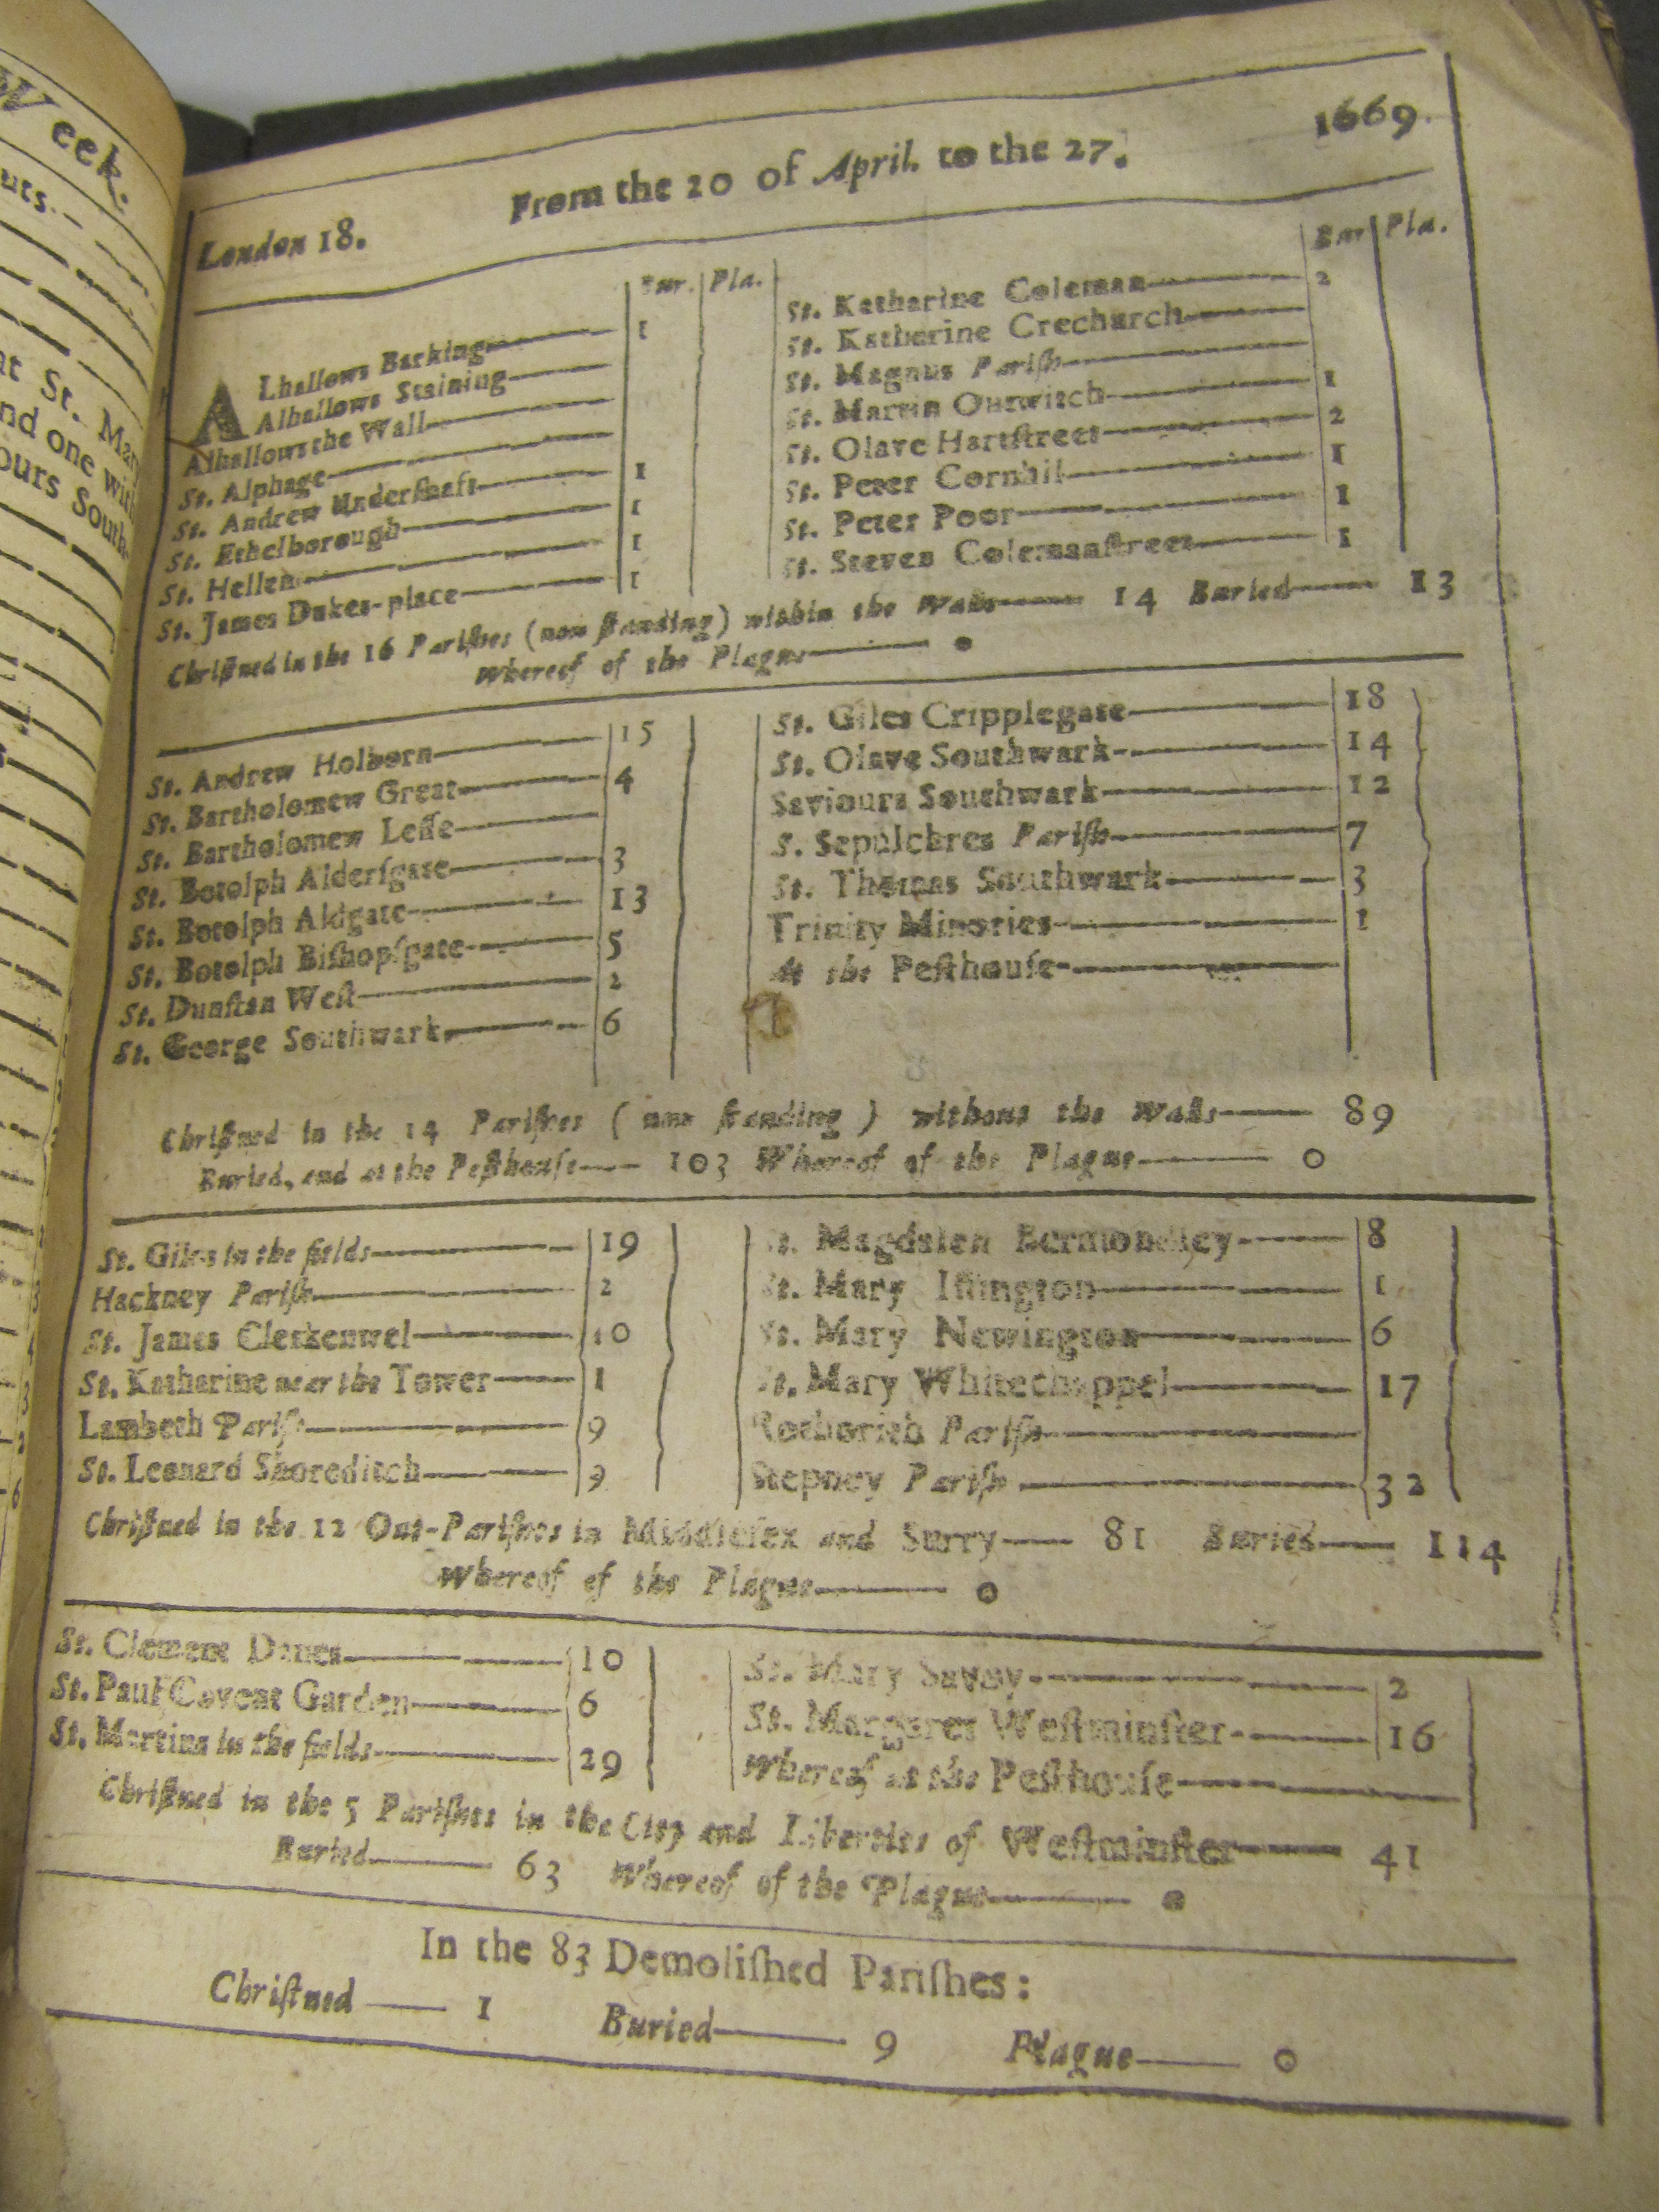 Week.
uts.
at St. Mar
nd one with
ours South
London 18.
From the 20 of April. to the 27.
1669
Bur. Pla.
ALhallows Barking 1
Alhallows Staining
Alhallows the Wall
St. Alphage
St. Andrew Underſhaft 1
St. Ethelborough 1
St. Hellen 1
St. James Dukes-place 1
Bur Pla.
St. Katharine Coleman 2
St. Katharine Crechurch
St. Magnus Pariſh
St. Martin Outwitch 1
St. Olave Hartſtreet 2
St. Peter Cornhil 1
St. Peter Poor 1
St. Steven Colemanſtreet 1
Chriſtned in the 16 Pariſhes (now ſtanding) within the Walls 14 Buried 13
Whereof of the Plague 0
St. Andrew Holborn 15
St. Bartholomew Great 4
St. Bartholomew Leſſe
St. Botolph Alderſgate 3
St. Botolph Aldgate 13
St. Botolph Biſhopſgate 5
St. Dunſtan Weſt 2
St. George Southwark 6
St. Giles Cripplegate 18
St. Olave Southwark 14
Saviours Southwark 12
S. Sepulchres Pariſh 7
St. Thomas Southwark 3
Trinity Minories 1
At the Peſthouſe
Chriſtned in the 14 Pariſhes (now ſtanding) without the Walls 89
Buried, and at the Peſthouſe 103 Whereof of the Plague 0
St. Giles in the fields 19
Hackney Pariſh 2
St. James Clerkenwel 10
St. Katharine near the Tower 1
Lambeth Pariſh 9
St. Leonard Shoreditch 9
St. Magdalen Bermondſey 8
St. Mary Iſlington 1
St. Mary Newington 6
St. Mary Whitechappel 17
Rotherith Pariſh
Stepney Pariſh 32
Chriſtned in the 12 Out-Pariſhes in Middleſex and Surry 81 Buried 114
Whereof of the Plague 0
St. Clement Danes 10
St. Paul Covent Garden 6
St. Martins in the fields 29
St. Mary Savoy 2
St. Margaret Weſtminſter 16
Whereof at the Peſthouſe
Chriſtned in the 5 Pariſhes in the City and Liberties of Weſtminſter 41
Buried 63 Whereof of the Plague 0
In the 83 Demoliſhed Pariſhes:
Chriſtned 1 Buried 9 Plague 0